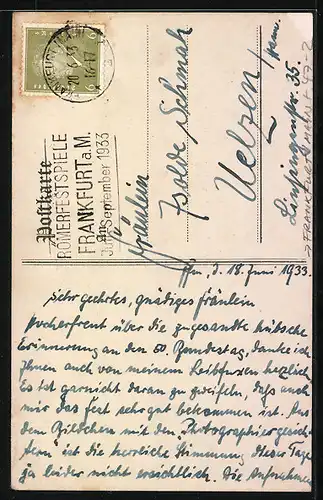 FRANKFURT
16-17
6
Postkarte
RÖMERFESTSPIELE
FRANKFURT a. M.
Juli-September 1933
An
Fräulein
Isolde Schmah
Uelzen/Hann.
35.
>FRANKFURT
Ffm, d. 18. Juni 1933.
Sehr geehrtes, gnädiges Fräulein
Hocherfreut über die zugesandte hübsche
Erinnerung an den 50. Bundestag, danke ich
Ihnen auch von meinem Leibfuxen herzlich.
Es ist garnicht daran zu zweifeln, daß auch
mir das Fest sehr gut bekommen ist. Aus
dem Bildchen mit den "Photographiergesich-
tern" ist die herrliche Stimmung dieser Tage
ja leider nicht ersichtlich. Die Aufnahmen